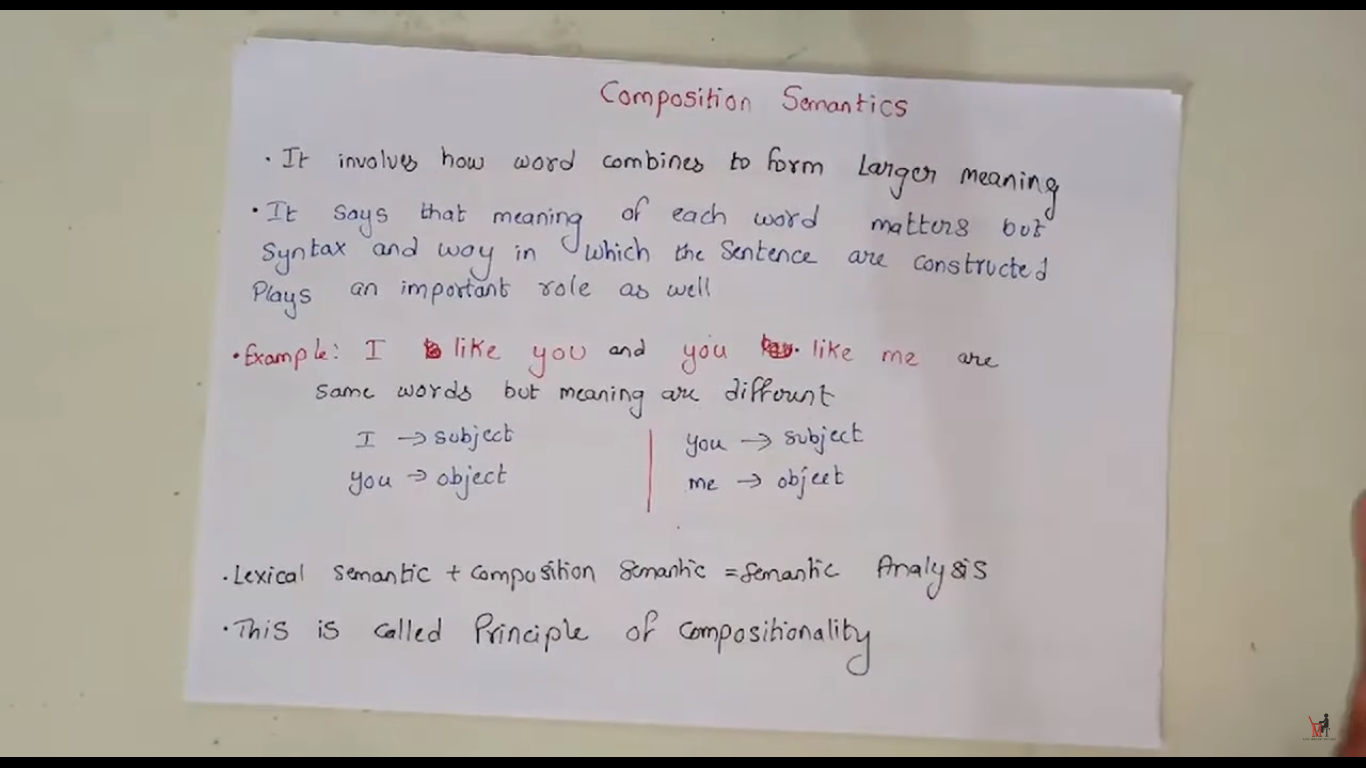 Composition Semantics
· It involves how word combines to form Larger meaning
· It says that meaning of each word matters but
syntax and way in which the sentence are constructed
Plays an important role as well
· Example: I like you and you like me are
same words but meaning are different
I → subject | you → subject
you → object | me → object
· Lexical semantic + composition semantic = semantic Analysis
· This is called Principle of compositionality